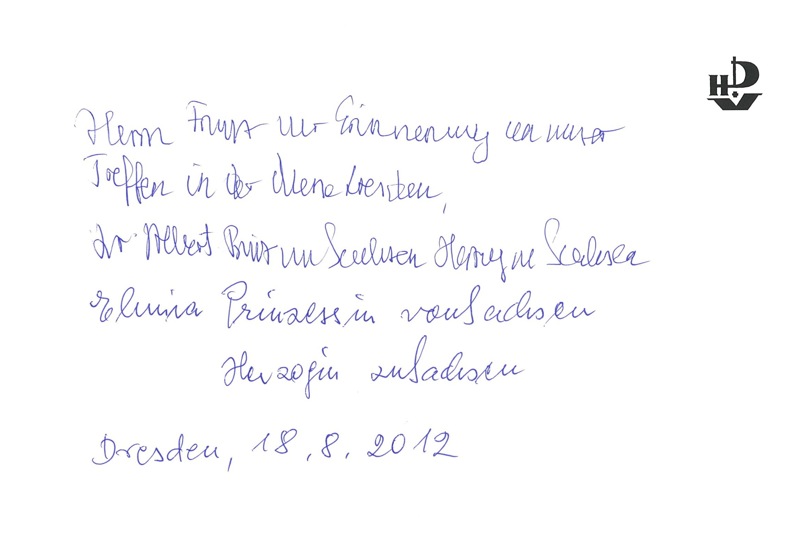 HDV
Herrn zur Erinnerung an unser
Treffen in der Dresden,
Dr. Albert Prinz von Sachsen Herzog zu Sachsen
Elmira Prinzessin von Sachsen
Herzogin zu Sachsen
Dresden, 18.8.2012